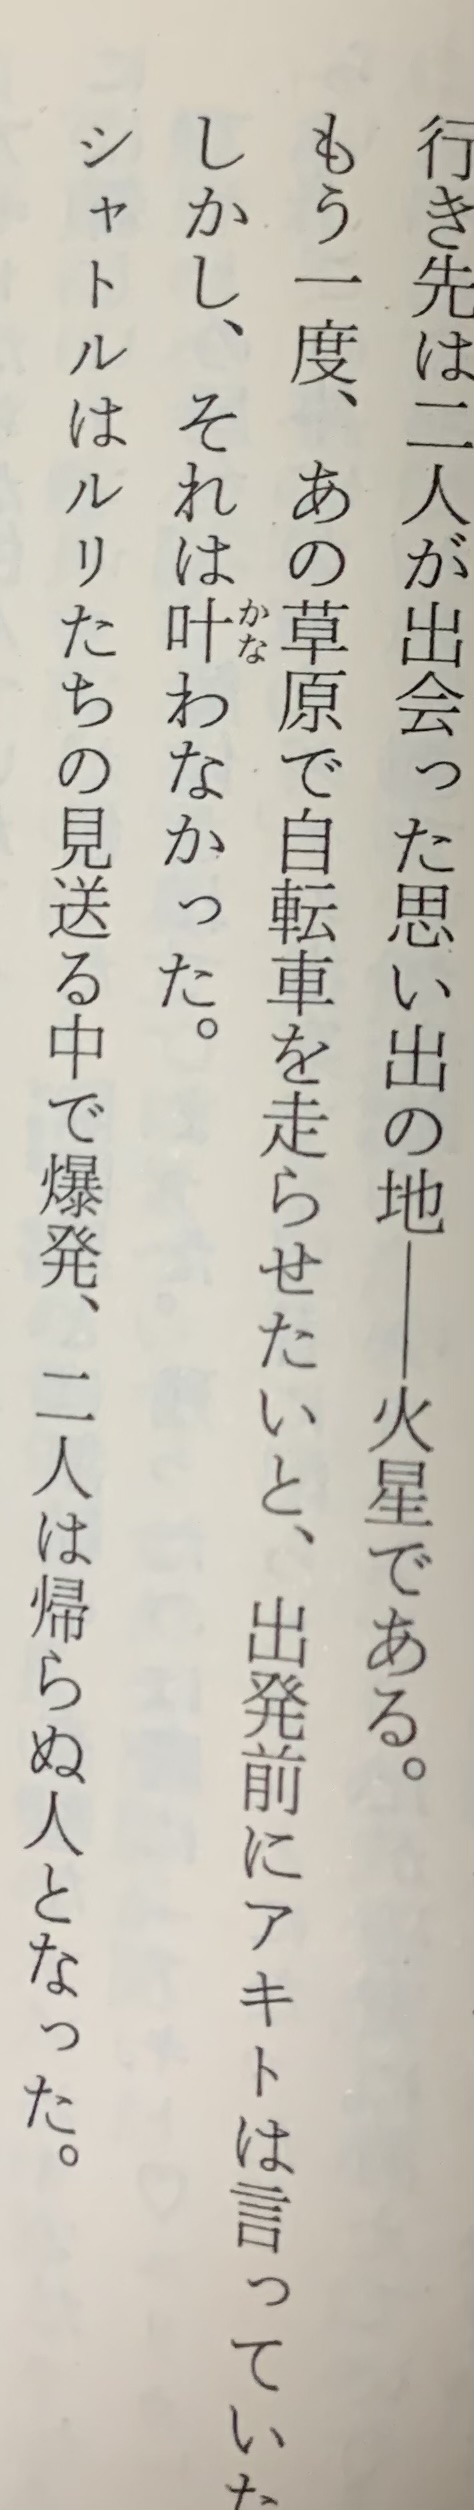 行き先は二人が出会った思い出の地――火星である。
もう一度、あの草原で自転車を走らせたいと、出発前にアキトは言っていた
しかし、それは叶わなかった。
かな
シャトルはルリたちの見送る中で爆発、二人は帰らぬ人となった。